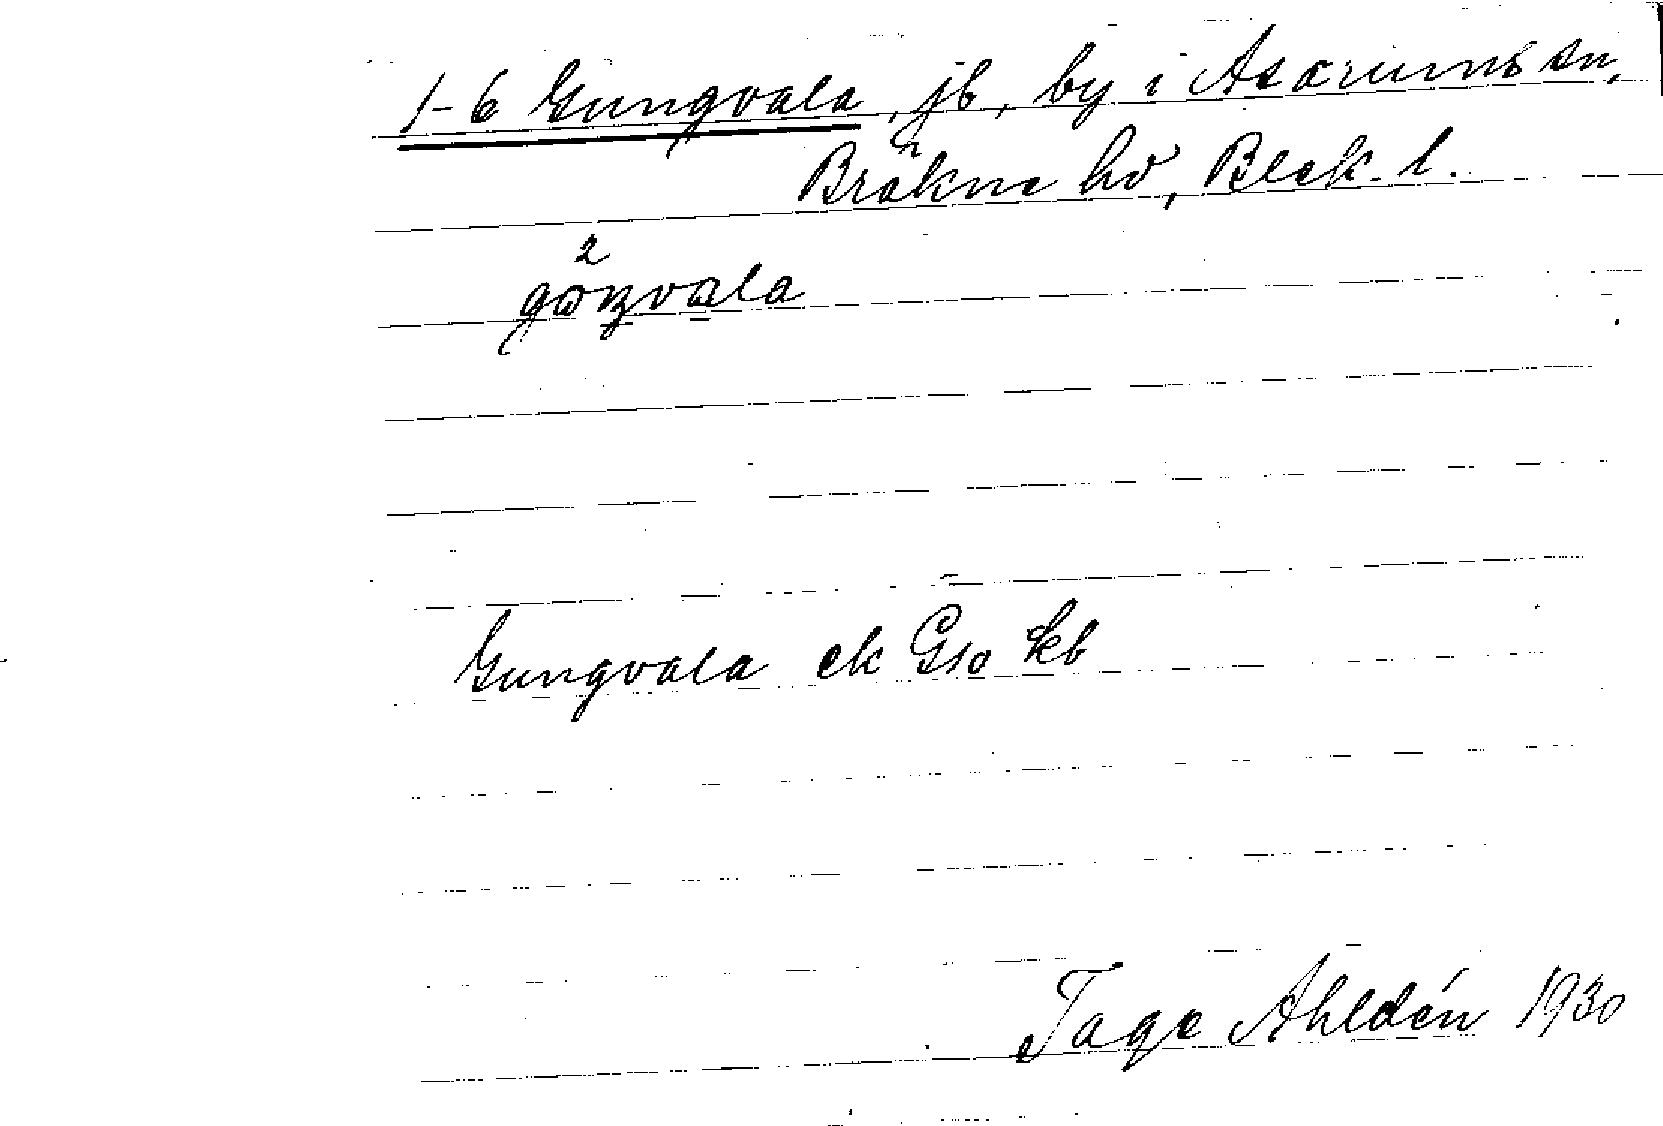 1-6 Gungvala, jb, by i Asarums sn,
Bräkne hd, Blek. l.
Gungvala ek G10 kb
Tage Ahldén 1930